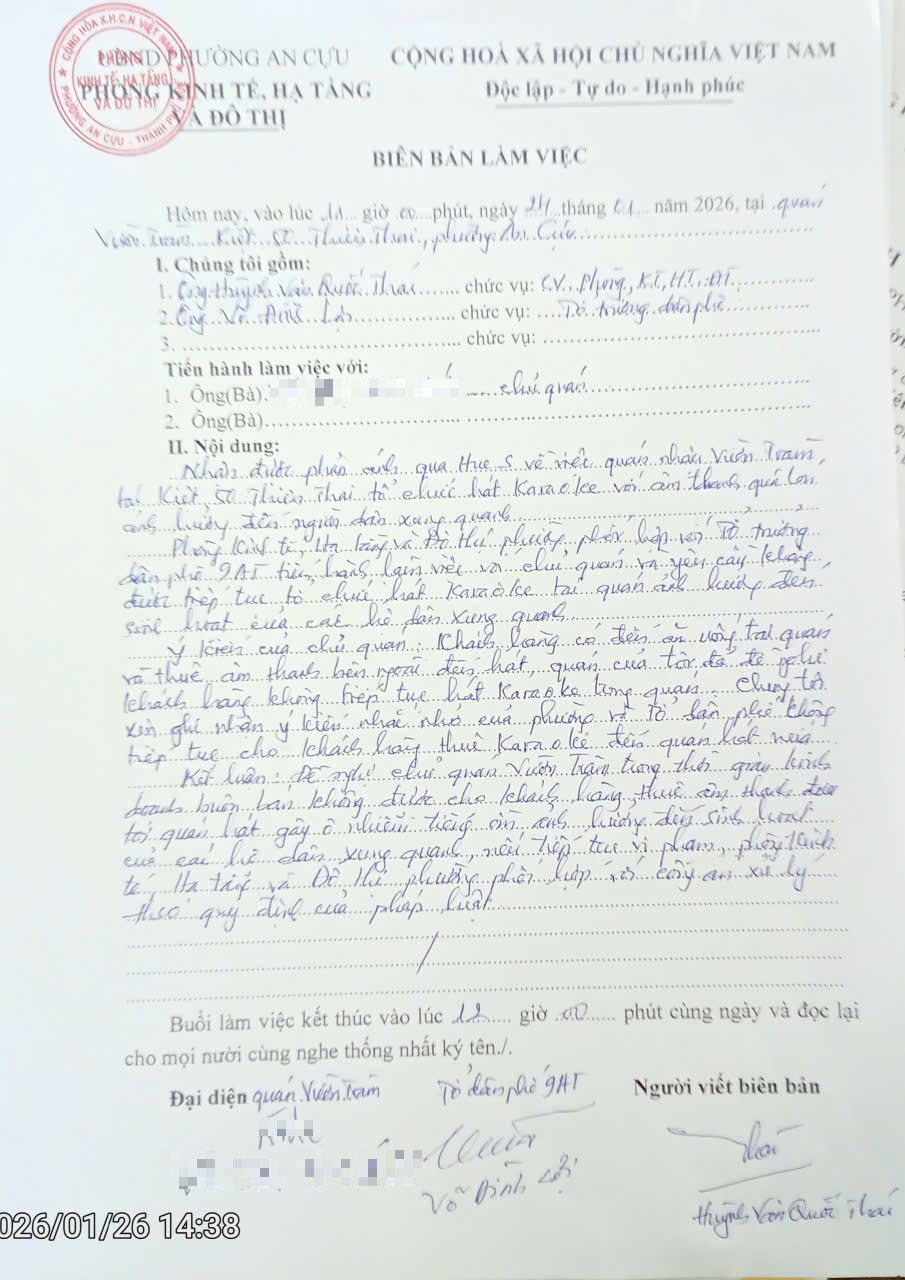 UBND PHƯỜNG AN CỰU
PHÒNG KINH TẾ, HẠ TẦNG
VÀ ĐÔ THỊ
CỘNG HÒA X.H.C.N VIỆT NAM
PHÒNG
KINH TẾ, HẠ TẦNG
VÀ ĐÔ THỊ
PHƯỜNG AN CỰU - THÀNH PHỐ
CỘNG HOÀ XÃ HỘI CHỦ NGHĨA VIỆT NAM
Độc lập - Tự do - Hạnh phúc
BIÊN BẢN LÀM VIỆC
Hôm nay, vào lúc 11 giờ 00 phút, ngày 24 tháng 01 năm 2026, tại quán
Vườn Tràm Kiệt 50 Thiên Thai, phường An Cựu
I. Chúng tôi gồm:
1. Ông Huỳnh Văn Quốc Thái chức vụ: CV. Phòng KT, HT, ĐT
2. Ông Võ Đình Lợi chức vụ: Tổ trưởng dân phố
3. chức vụ:
Tiến hành làm việc với:
1. Ông(Bà). chủ quán
2. Ông(Bà)
II. Nội dung:
Nhận được phản ánh qua Hue_S về việc quán nhậu Vườn Tràm,
tại Kiệt 50 Thiên Thai tổ chức hát Karaoke với âm thanh quá lớn
ảnh hưởng đến người dân xung quanh
Phòng Kinh tế, Hạ tầng và Đô thị phường phối hợp với Tổ trưởng
dân phố 9AT tiến hành làm việc với chủ quán và yêu cầu không
được tiếp tục tổ chức hát Karaoke tại quán ảnh hưởng đến
sinh hoạt của các hộ dân xung quanh
Ý kiến của chủ quán: Khách hàng có đến ăn uống tại quán
và thuê âm thanh bên ngoài đến hát, quán của tôi đã đề nghị
khách hàng không tiếp tục hát Karaoke trong quán. Chúng tôi
xin ghi nhận ý kiến nhắc nhở của phường và Tổ dân phố không
tiếp tục cho khách hàng thuê Karaoke đến quán hát nữa
Kết luận: Đề nghị chủ quán Vườn Tràm trong thời gian kinh
doanh buôn bán không được cho khách hàng thuê âm thanh đem
tới quán hát gây ô nhiễm tiếng ồn, ảnh hưởng đến sinh hoạt
của các hộ dân xung quanh, nếu tiếp tục vi phạm, phòng Kinh
tế, Hạ tầng và Đô thị phường phối hợp với công an xử lý
theo quy định của pháp luật
Buổi làm việc kết thúc vào lúc 12 giờ 00 phút cùng ngày và đọc lại
cho mọi nười cùng nghe thống nhất ký tên./.
Đại diện quán Vườn Tràm
Tổ dân phố 9AT
Người viết biên bản
Võ Đình Lợi
Huỳnh Văn Quốc Thái
026/01/26 14:38